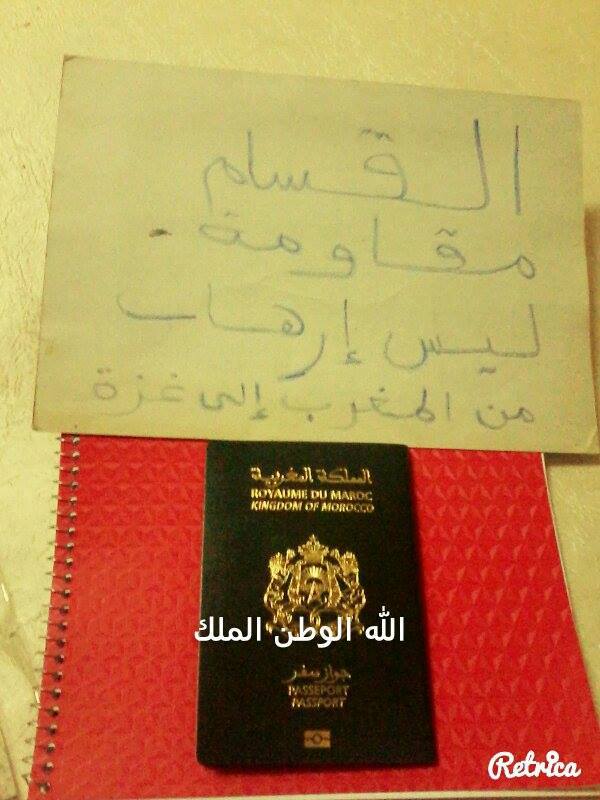 القسام
مقاومة
ليس إرهاب
من المغرب إلى غزة
المملكة المغربية
ROYAUME DU MAROC
KINGDOM OF MOROCCO
الله الوطن الملك
جواز سفر
PASSEPORT
PASSPORT
Retrica